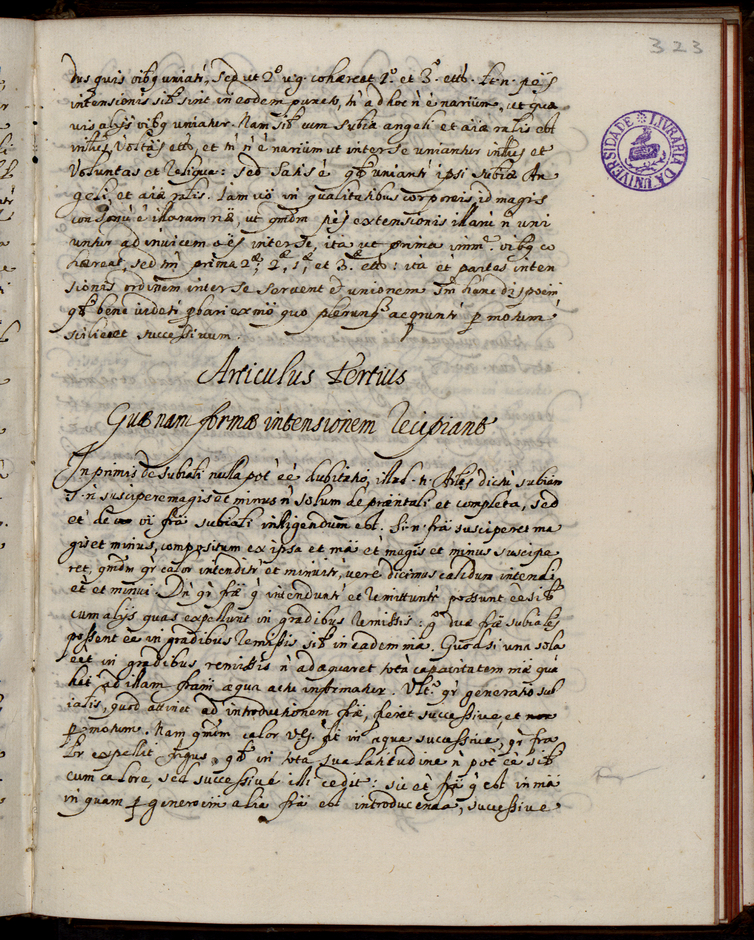 323
LIVRARIA DA UNIVERSIDADE
dus quis oibq uniati, sed ut 2º v.g. cohæreat 1º et 3º
intensionis sibi sint in eodem puncto, tn ad hoc n é narium, ut qua
vis alijs oibq uniatur. Nam sib cum subia angeli et aiæ ralis est
et tn n é narium ut inter se uniantur intlus et
Voluntas et reliquæ: sed satis é qb unianti ipsi subiæ An
geli, et aiæ ralis. Iam uo in qualitatibus corporeis, id magis
extensionis illarū n uni
untur ad invicem oés inter se, ita ut prima imme oibq co
hæreat, sed tm prima 2æ, 2æ, et 3æ ettc: ita et partes inten
sionis ordinem inter se servent et unionem. Im hanc dispoem
qb bene videti pbari ex mō quo plerunq acqrunti p motum
scilicet successivum.
Articulus Tertius
Quænam formæ intensionem recipiant
In primis de subiali nulla pot eé dubitatio, illud .n. Arlis dictū subiam
s. n suscipere magis et minus n solum de præntali et completa, sed
et de oi fra subiali intlligendum est. Si .n. fra susciperet ma
gis et minus, compositum ex ipsa et mā et magis et minus suscipe
ret, qmdm qr calor intenditr et minuitr, vere dicimus calidum intendi
et et minui. Dn qr fræ q intenduntr et remittuntr possunt eé sib
cum alijs quas expellunt in gradibus remissis: qe duæ fræ subiales
possent eé in gradibus remissis sib in eadem mā. Quod si una sola
eét in gradibus remissis n adæquaret tota capacitatem mæ qua
het ad illam fram qua actu informatur. Ult. qr generatio sub
ialis, quod attinet ad introductionem fræ, fieret successive, et
p motum. Nam qmdm calor v.g. fit in aqua successive, qr fra
expellit frigus, qb in tota sua latitudine n pot eé sib
cum calore, sed successive illi cedit: sic et fra q est in mā
in quam p generoem alia fra est introducenda, successive